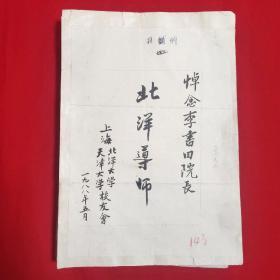 悼念李書田院長
北洋導師
上海北洋大学
天津大学校友會
一九八八年五月